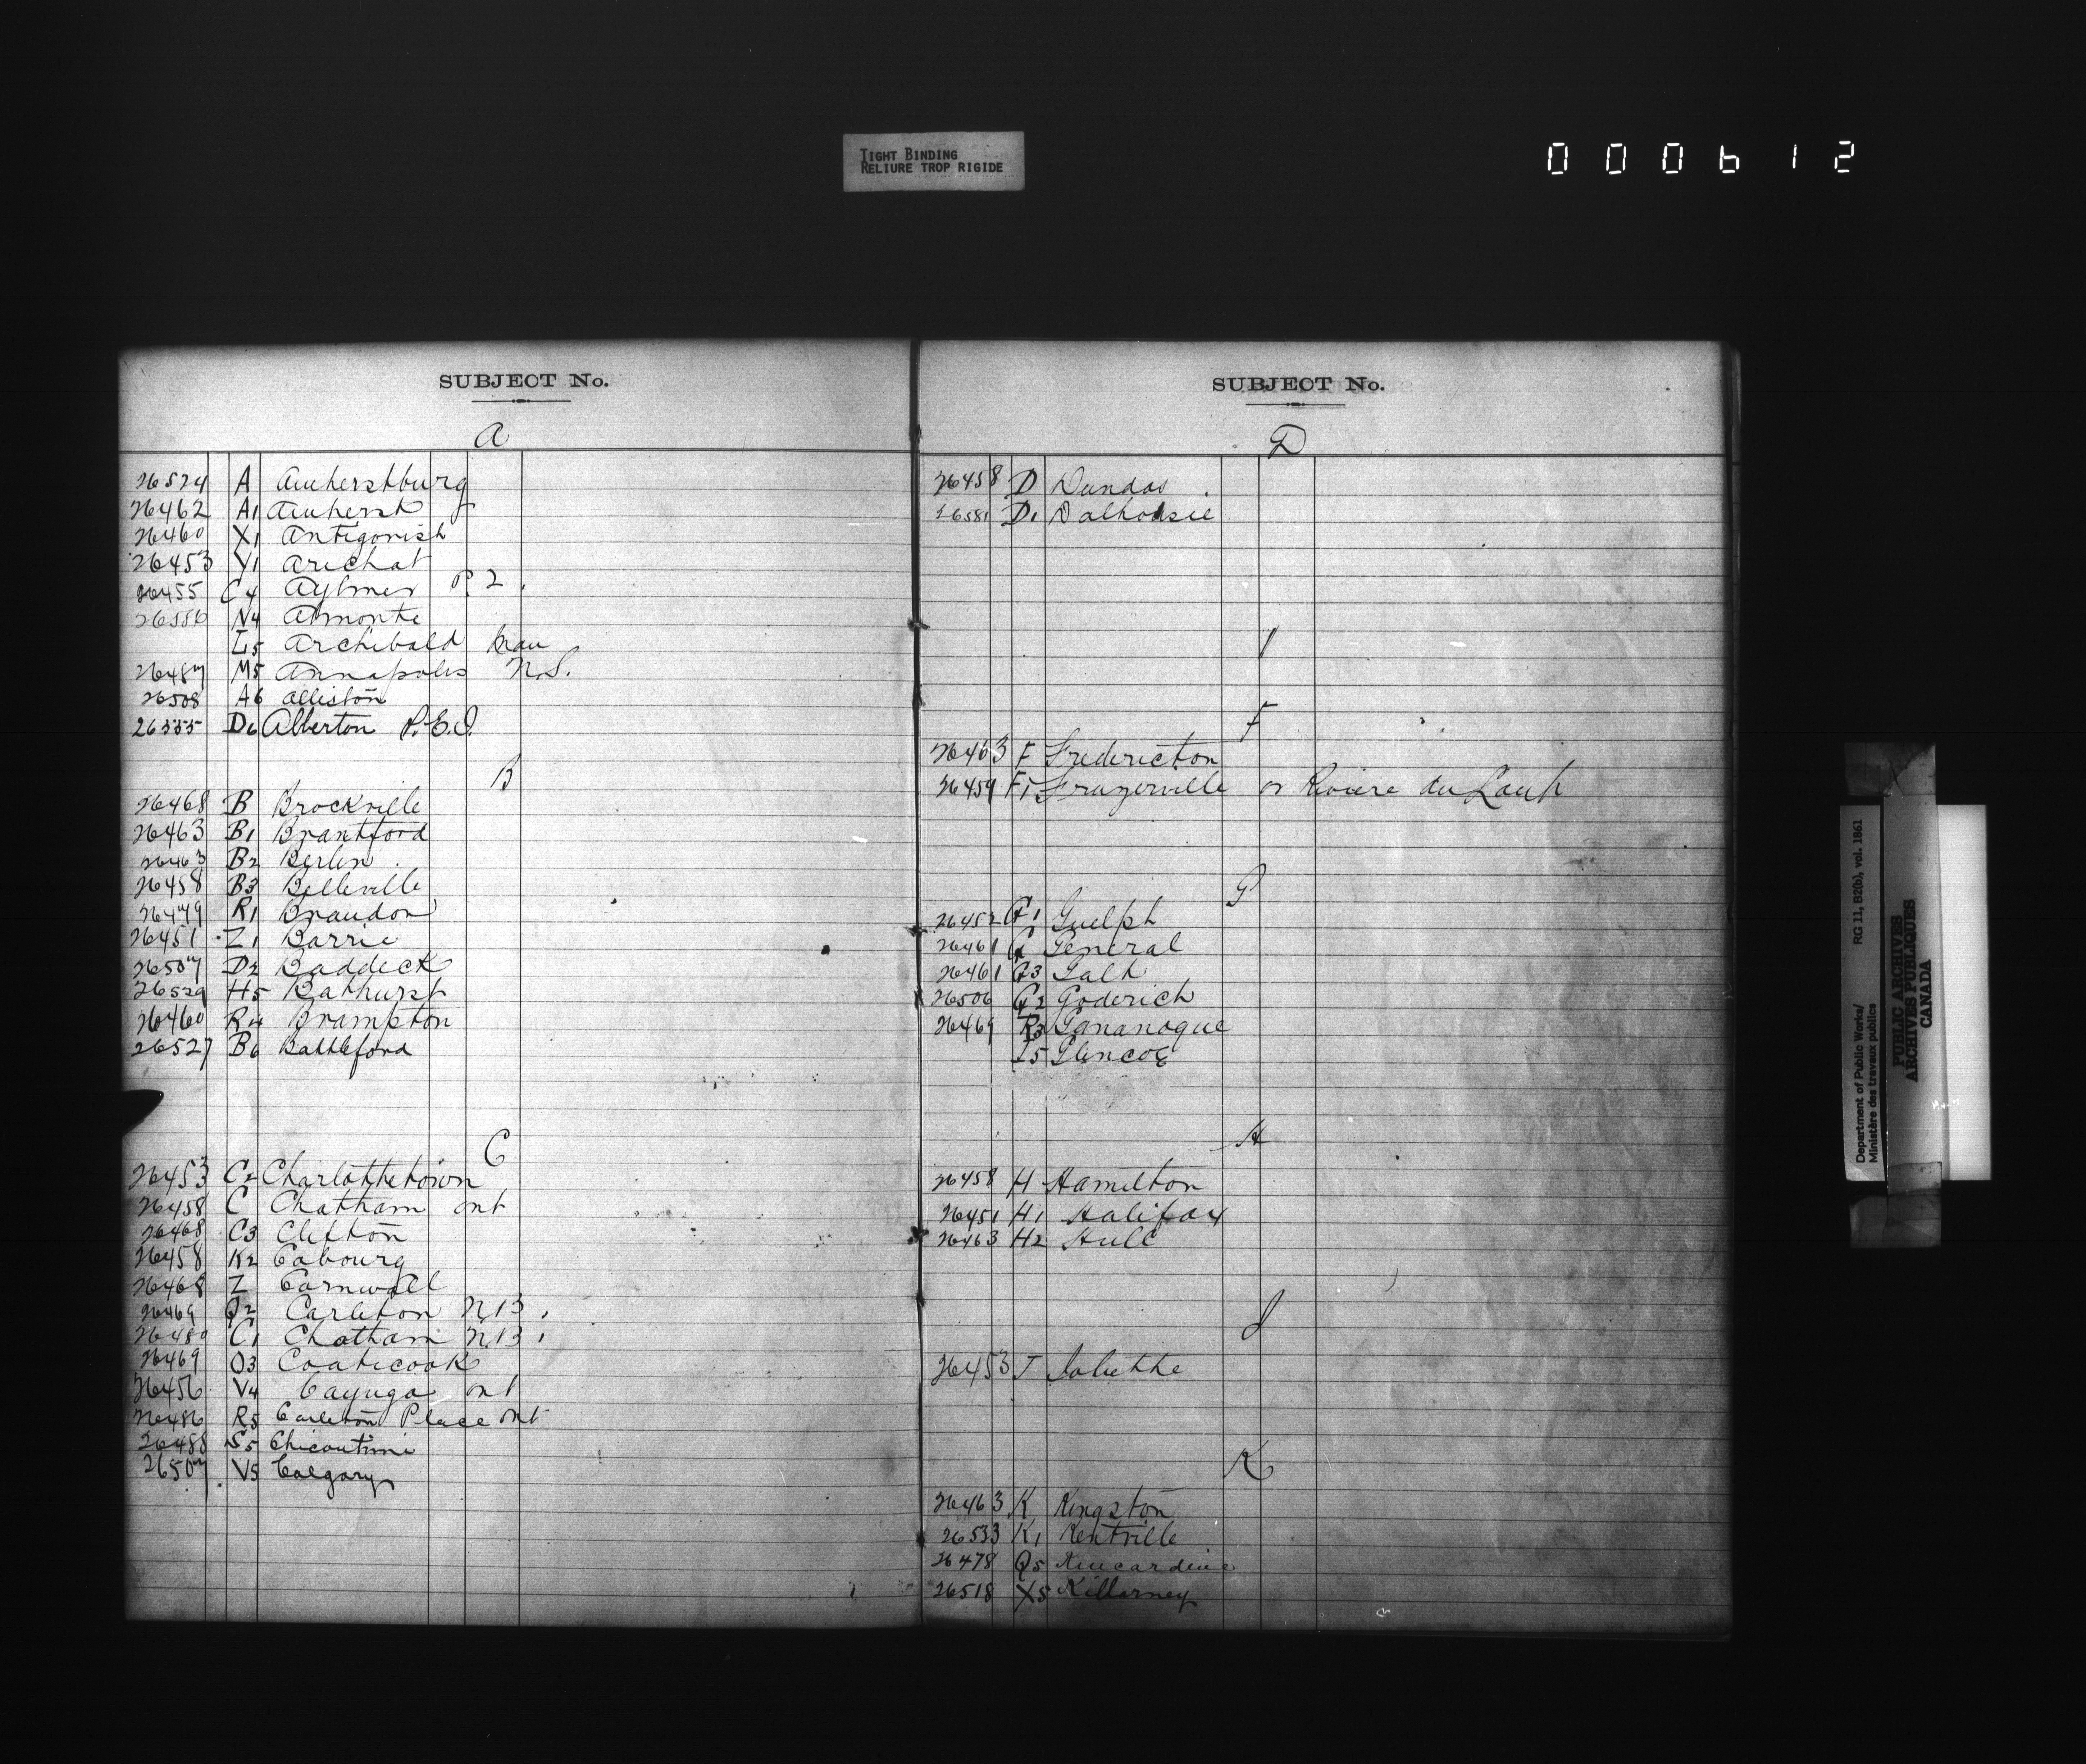 TIGHT BINDING
RELIURE TROP RIGIDE
000612
SUBJECT No.
A
26524 A Amherstburg
26462 A1 Amherst
26460 X1 Antigonish
26453 Y1 Arichat
26455 C4 Aylmer P.2.
N4 Almonte
L5 Archibald Man
26487 M5 Annapolis N.S.
26508 A6 Alliston
26535 D6 Alberton P.E.I.
B
26468 B Brockville
26463 B1 Brantford
26463 B2 Berlin
26458 B3 Belleville
26479 R1 Brandon
26451 Z1 Barrie
26507 D2 Baddeck
26529 H5 Bathurst
26460 R4 Brampton
26527 B6 Battleford
C
26453 C2 Charlottetown
26458 C Chatham Ont
26468 C3 Clifton
26458 K2 Cobourg
26468 Z Cornwall
26469 Q2 Carleton N.B.
26480 C1 Chatham N.B.
26469 O3 Coaticook
26456 V4 Cayuga Ont
26486 R5 Carleton Place Ont
26488 S5 Chicoutimi
26507 V5 Calgary
SUBJECT No.
D
26458 D Dundas
26581 D1 Dalhousie
F
26463 F Fredericton
26459 F1 Frazerville or Riviere du Loup
G
26452 G1 Guelph
26461 G General
26461 G3 Galt
26506 G2 Goderich
26469 R3 Gananoque
I5 Glencoe
H
26458 H Hamilton
26451 H1 Halifax
26463 H2 Hull
J
26453 J Joliette
K
26463 K Kingston
26533 K1 Kentville
26478 Q5 Kincardine
26518 X5 Killarney
Department of Public Works/
Ministère des travaux publics
RG 11, B2(b), vol. 1861
PUBLIC ARCHIVES
ARCHIVES PUBLIQUES
CANADA